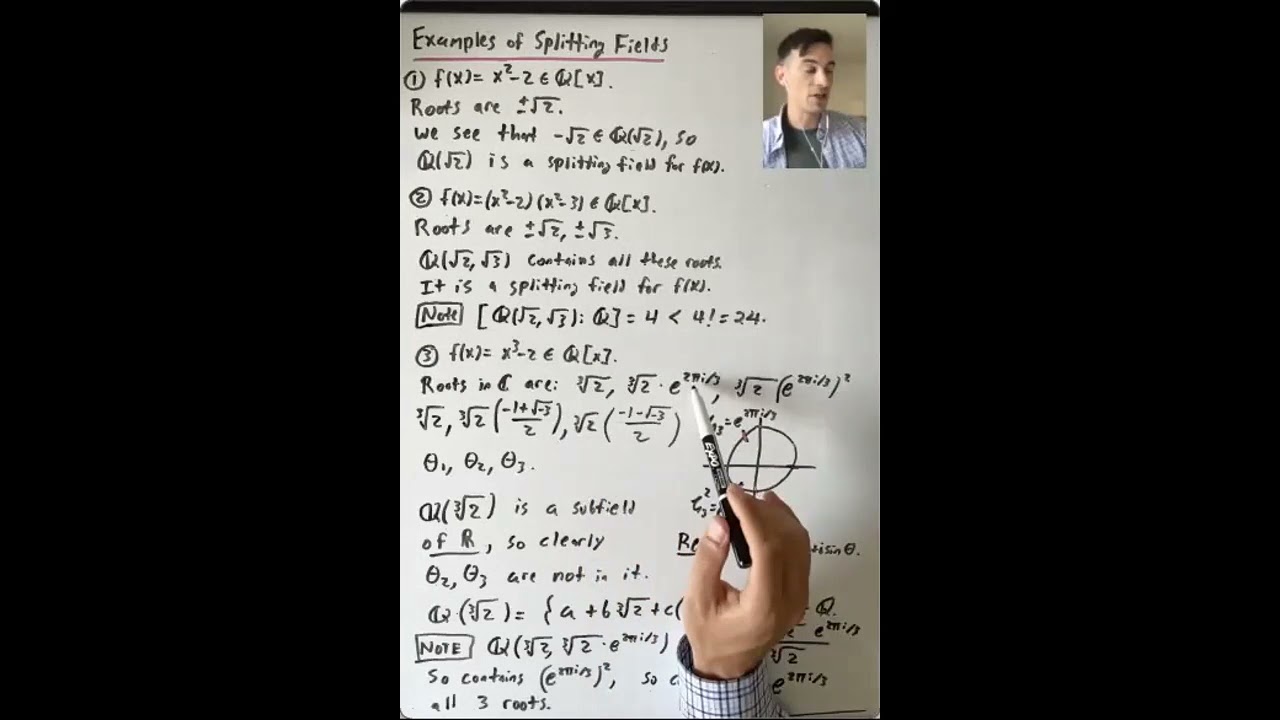 Examples of Splitting Fields
① f(x) = x²-2 ∈ ℚ[x].
Roots are ±√2.
We see that -√2 ∈ ℚ(√2), so
ℚ(√2) is a splitting field for f(x).
② f(x) = (x²-2)(x²-3) ∈ ℚ[x].
Roots are ±√2, ±√3.
ℚ(√2, √3) contains all these roots.
It is a splitting field for f(x).
Note [ℚ(√2, √3): ℚ] = 4 < 4! = 24.
③ f(x) = x³-2 ∈ ℚ[x].
Roots in ℂ are: ∛2, ∛2 · e^(2πi/3), ∛2 (e^(2πi/3))²
∛2, ∛2 ((-1+√-3)/2), ∛2 ((-1-√-3)/2)
ζ₃ = e^(2πi/3)
θ₁, θ₂, θ₃.
ζ₃² =
ℚ(∛2) is a subfield
of ℝ, so clearly
+isinθ.
θ₂, θ₃ are not in it.
ℚ(∛2) = { a + b∛2 + c(
ℚ.
NOTE ℚ(∛2, ∛2 · e^(2πi/3))
e^(2πi/3)
∛2
So contains (e^(2πi/3))², so
e^(2πi/3)
all 3 roots.
EXPO